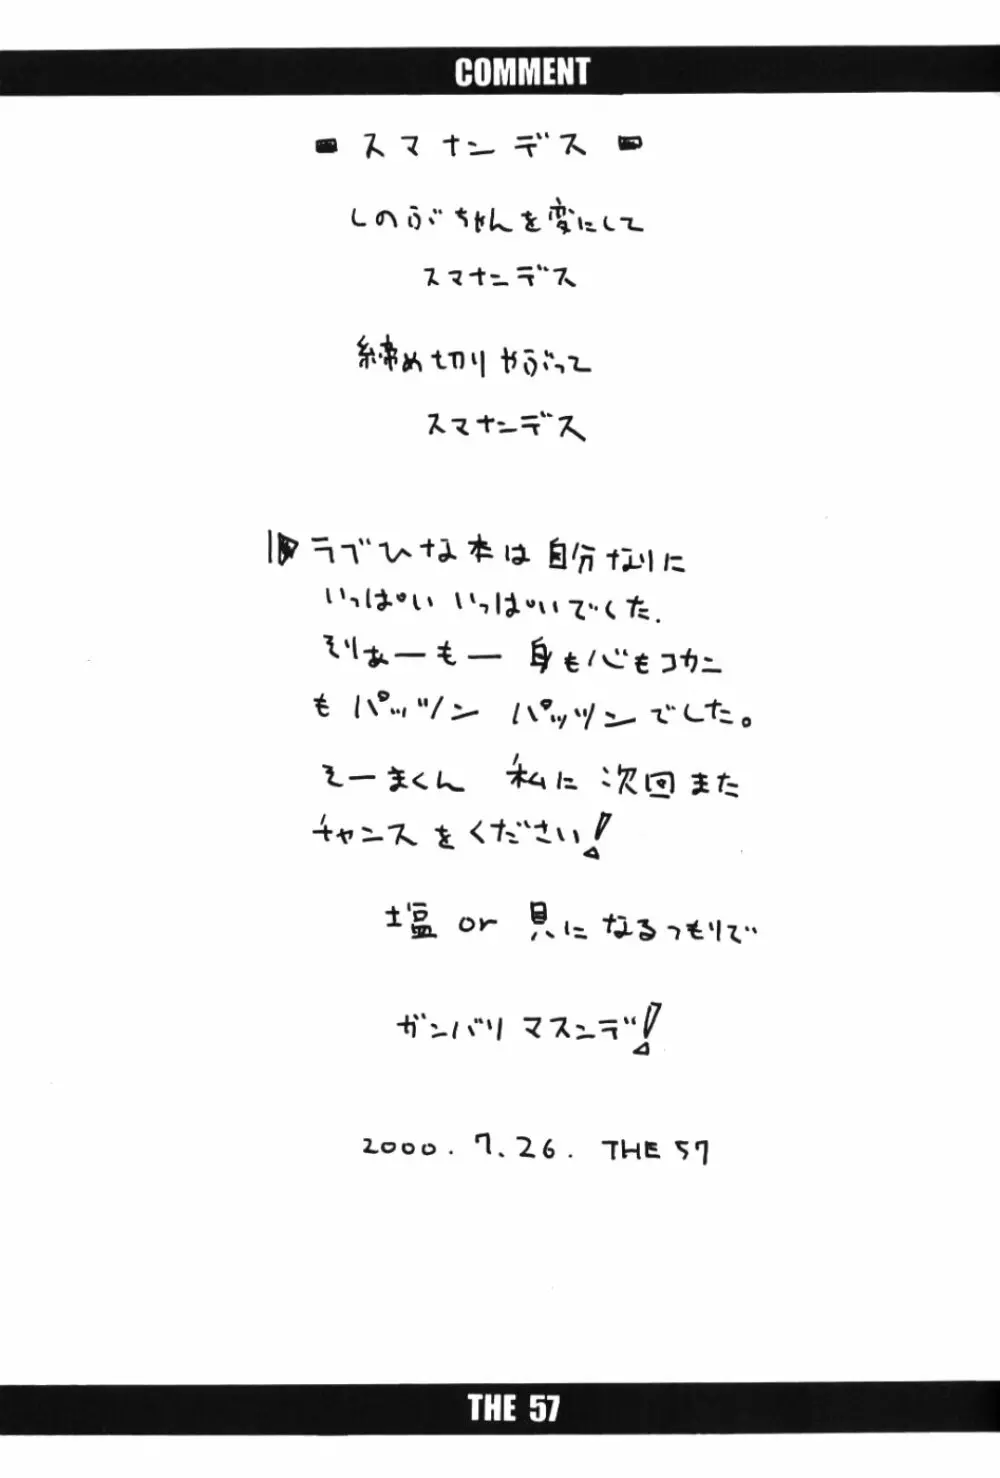 COMMENT
スマナンデス
しのぶちゃんを変にして
スマナンデス
締め切りやぶって
スマナンデス
ラブひな本は自分なりに
いっぱいいっぱいでした.
そりぁーもー身も心もコカン
もパッツンパッツンでした。
そーまくん 私に次回また
チャンスをください!
塩 or 貝になるつもりで
ガンバリマスンデ!
2000.7.26. THE 57
THE 57